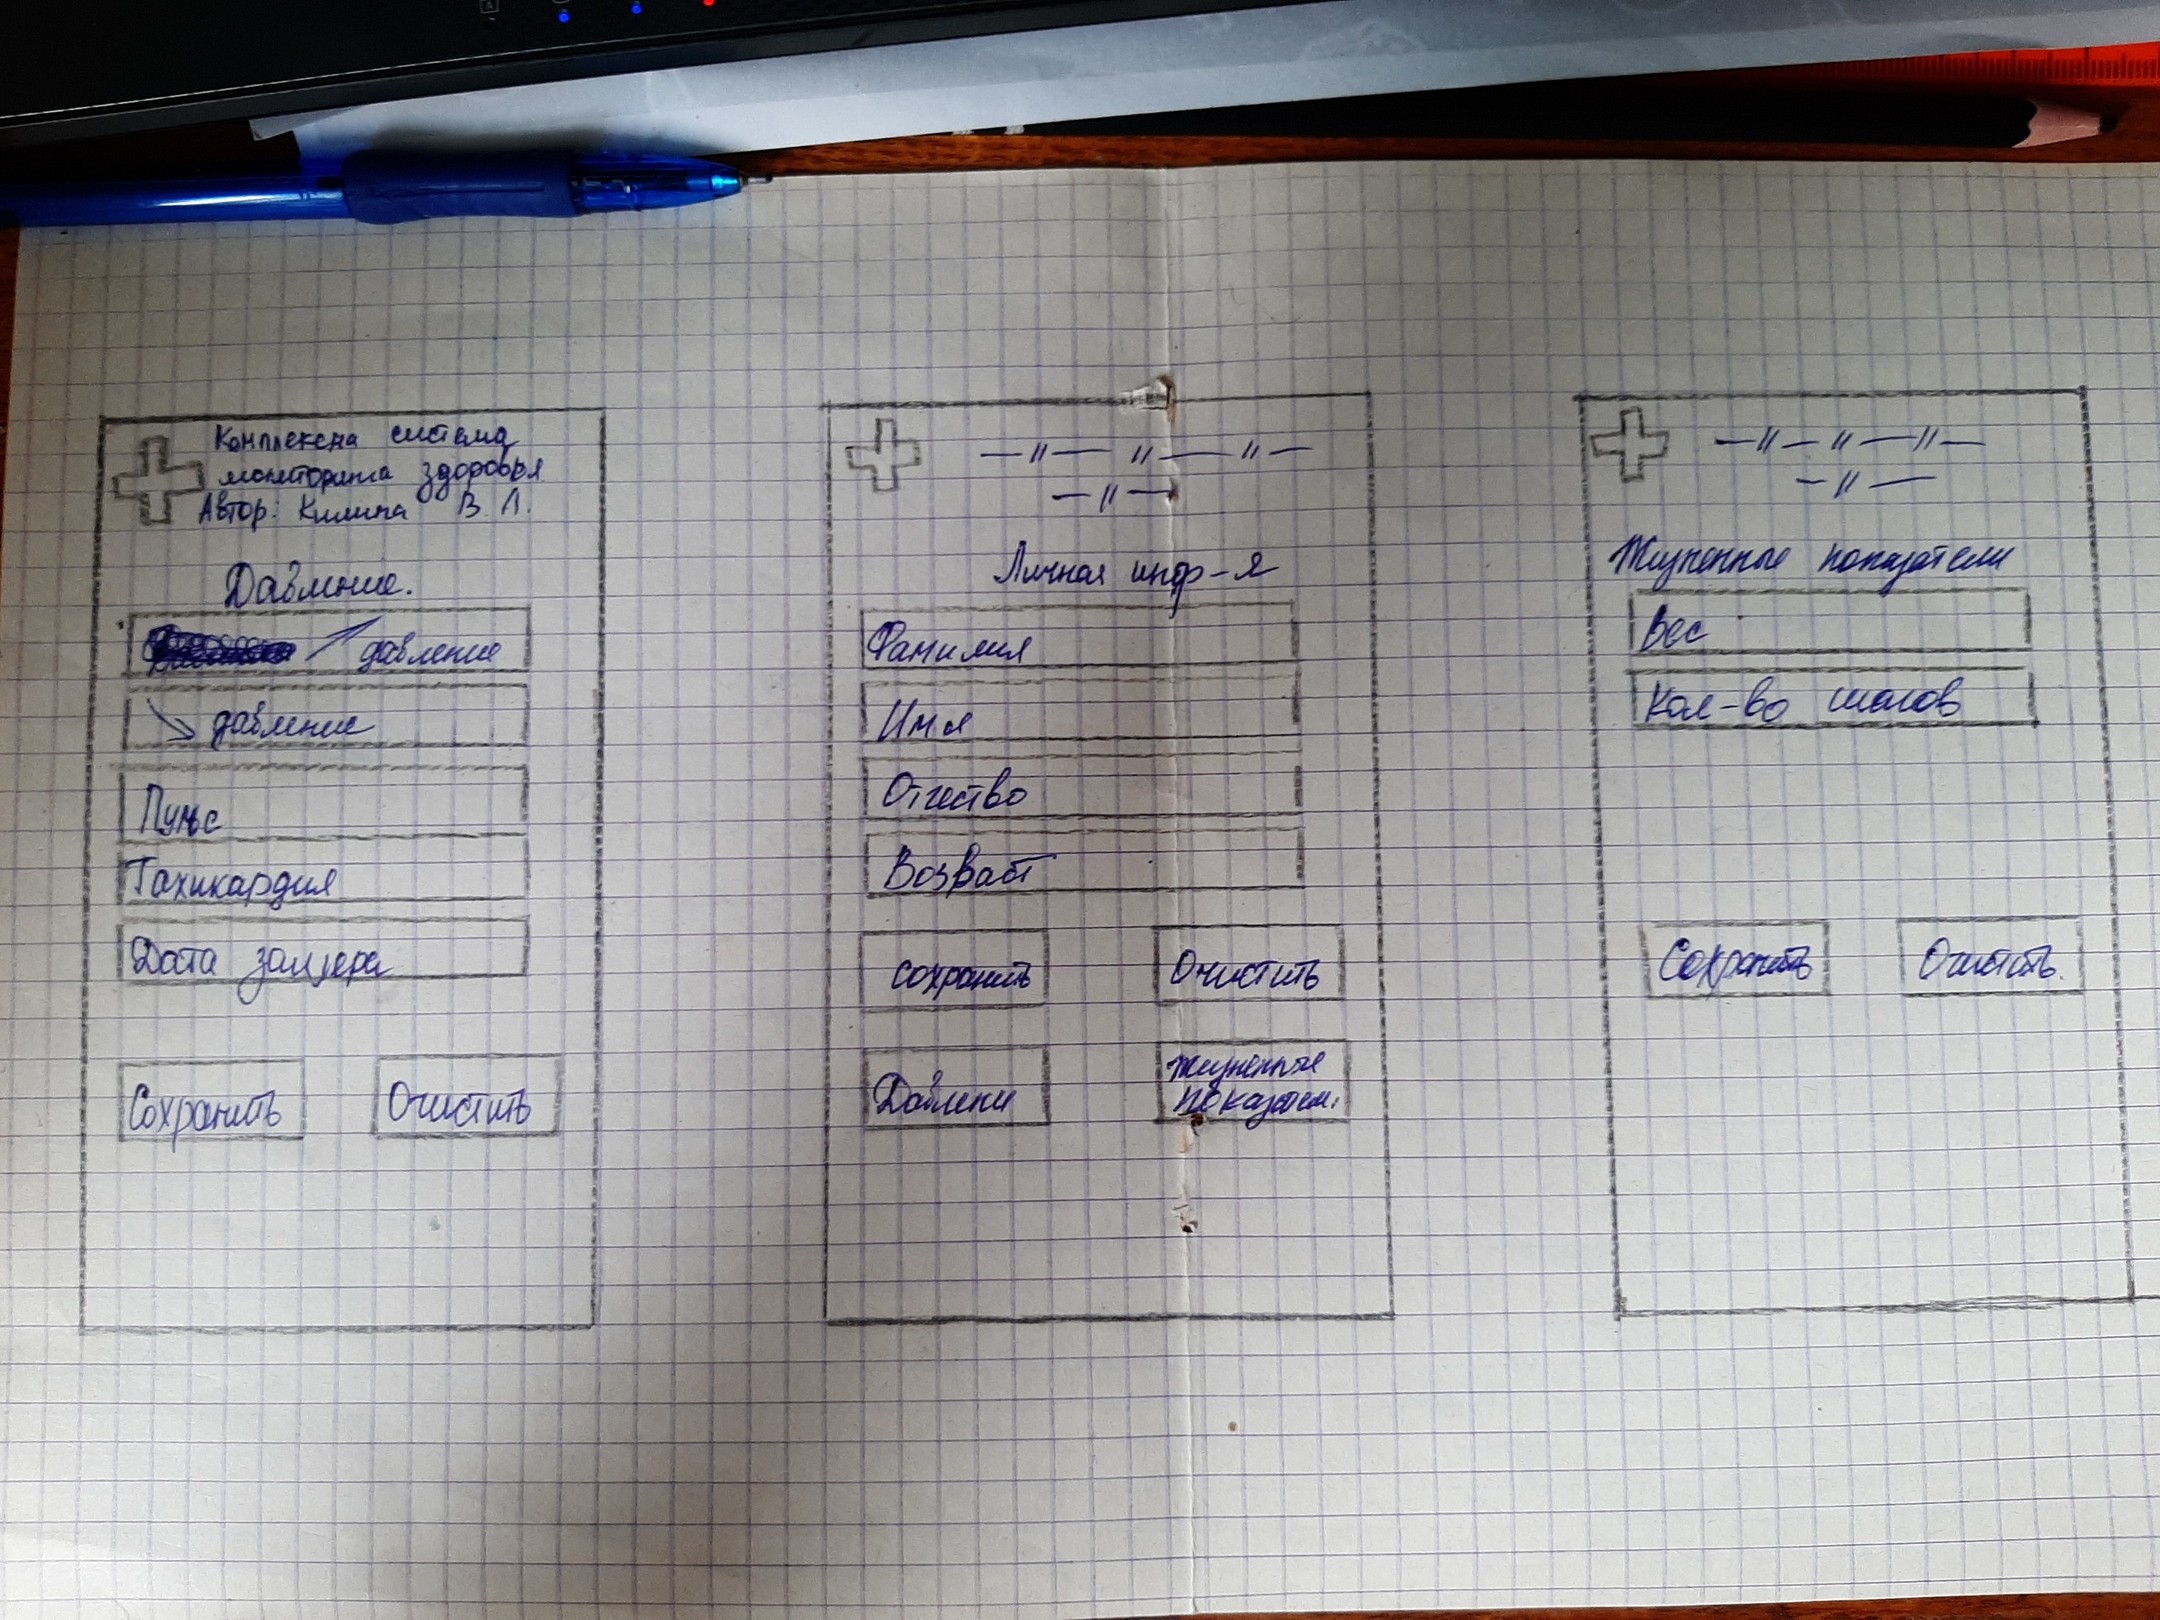 Комплексна система
мониторинга здоровья
Автор: Килипа В. Л.
Давление.
↗ давление
↘ давление
Пульс
Тахикардия
Дата замера
Сохранить
Очистить
—〃— 〃 —〃—
—〃—
Личная инф-я
Фамилия
Имя
Отчество
Возраст
Сохранить
Очистить
Давлени
Жизненные
показател.
—〃—〃—〃—
—〃—
Жизненные показатели
Вес
Кол-во шагов
Сохранить
Очистить.